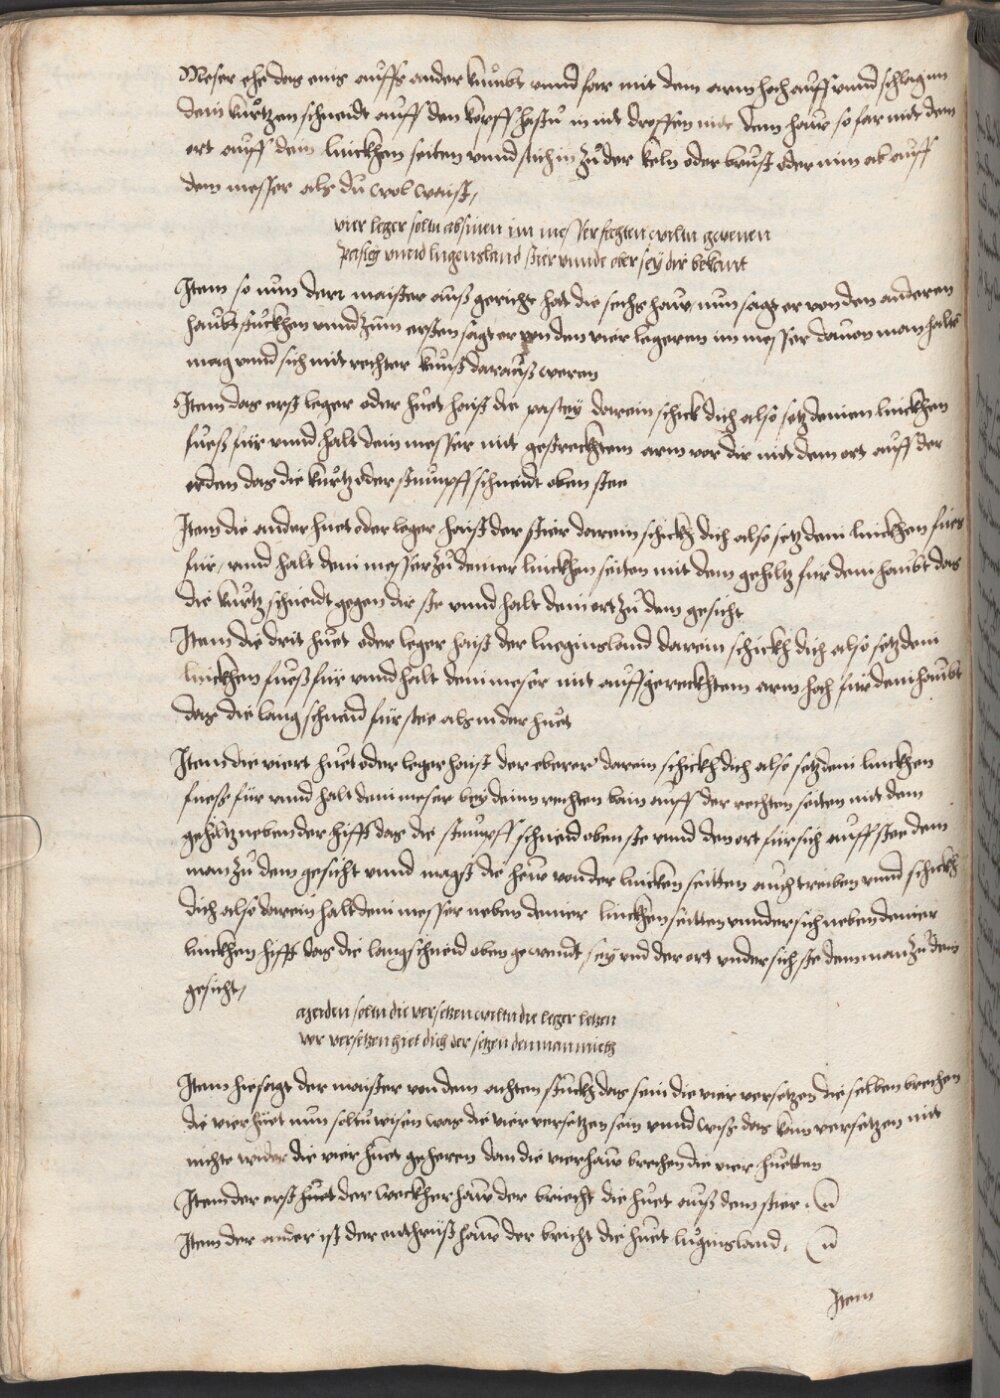 Messer ehe das ains auffs ander knübt vnnd far mit dem arm hoch auff vnnd schlag im
dein kurtzen schneidt auff den kopff hastu in nit droffen mit dem haw so far mit dem
ort auff dein linckhen seiten vnnd stich in zu der keln oder brust oder nim ab auff
dem messer als du wol waist,
vier leger soltu absinen im messer fechten wiltu gwenen
pastey vnnd lugensland stier vnnde eber sey dir bekant
Item so nun der maister auß gericht hat die sechs haw nun sagt er von den anderen
haubt stuckhen vnnd zum ersten sagt er von den vier legeren im messer dauon man halten
mag vnnd sich mit rechter kunst darauß weren
Item das erst leger oder huet haist die pastey darein schick dich also setz deinen linckhen
fuess für vnnd halt dein messer mit gestrecktem arm vor dir mit dem ort auff der
erden das die kurtz oder stumpff schneidt oben stee
Item die ander huet oder leger haist der stier darein schickh dich also setz dein linckhen fues
für, vnnd halt dein messer zu deiner linckhen seiten mit dem gehiltz für dein haubt das
die kurtz schneidt gegen dir ste vnnd halt dein ort zu dem gesicht
Item die drit huet oder leger haist der lueginsland darein schickh dich also setz dein
linckhen fuess für vnnd halt dein messer mit auffgereckhtem arm hoch für dein haubt
das die lang schneid für stee als in der huet
Item die viert huet oder leger haist der eberer darein schickh dich also setz dein linckhen
fuess für vnnd halt dein messer bey deim rechten bain auff der rechten seiten mit dem
gehiltz neben der hiff das die stumpff schneid oben ste vnnd den ort für sich auff stee dem
man zu dem gesicht vnnd magst die hew von der lincken seitten auch treiben vnnd schickh
dich also darein halt dein messer neben deiner linckhen seitten vnndersich neben deiner
linckhen hiff das die lang schneid oben gewendt sey vnd der ort vndersich ste dem man zu dem
gesicht,
soltu die versetzen wiltu die leger letzen
vor versetzen hiet dich der setzen den man mietz
Item hie sagt der maister von dem achten stuckh das sein die vier versetzen die selben brechen
die vier huet nun soltu wisen was die vier versetzen sein vnnd wiss das kain versetzen nit
nichts wider die vier huet geheren dan die vier haw brechen die vier huetten
Item der erst huet der weckher haw der briecht die huet auß dem stier.
Item der ander ist der entrüst haw der bricht die huet luginsland.
Item